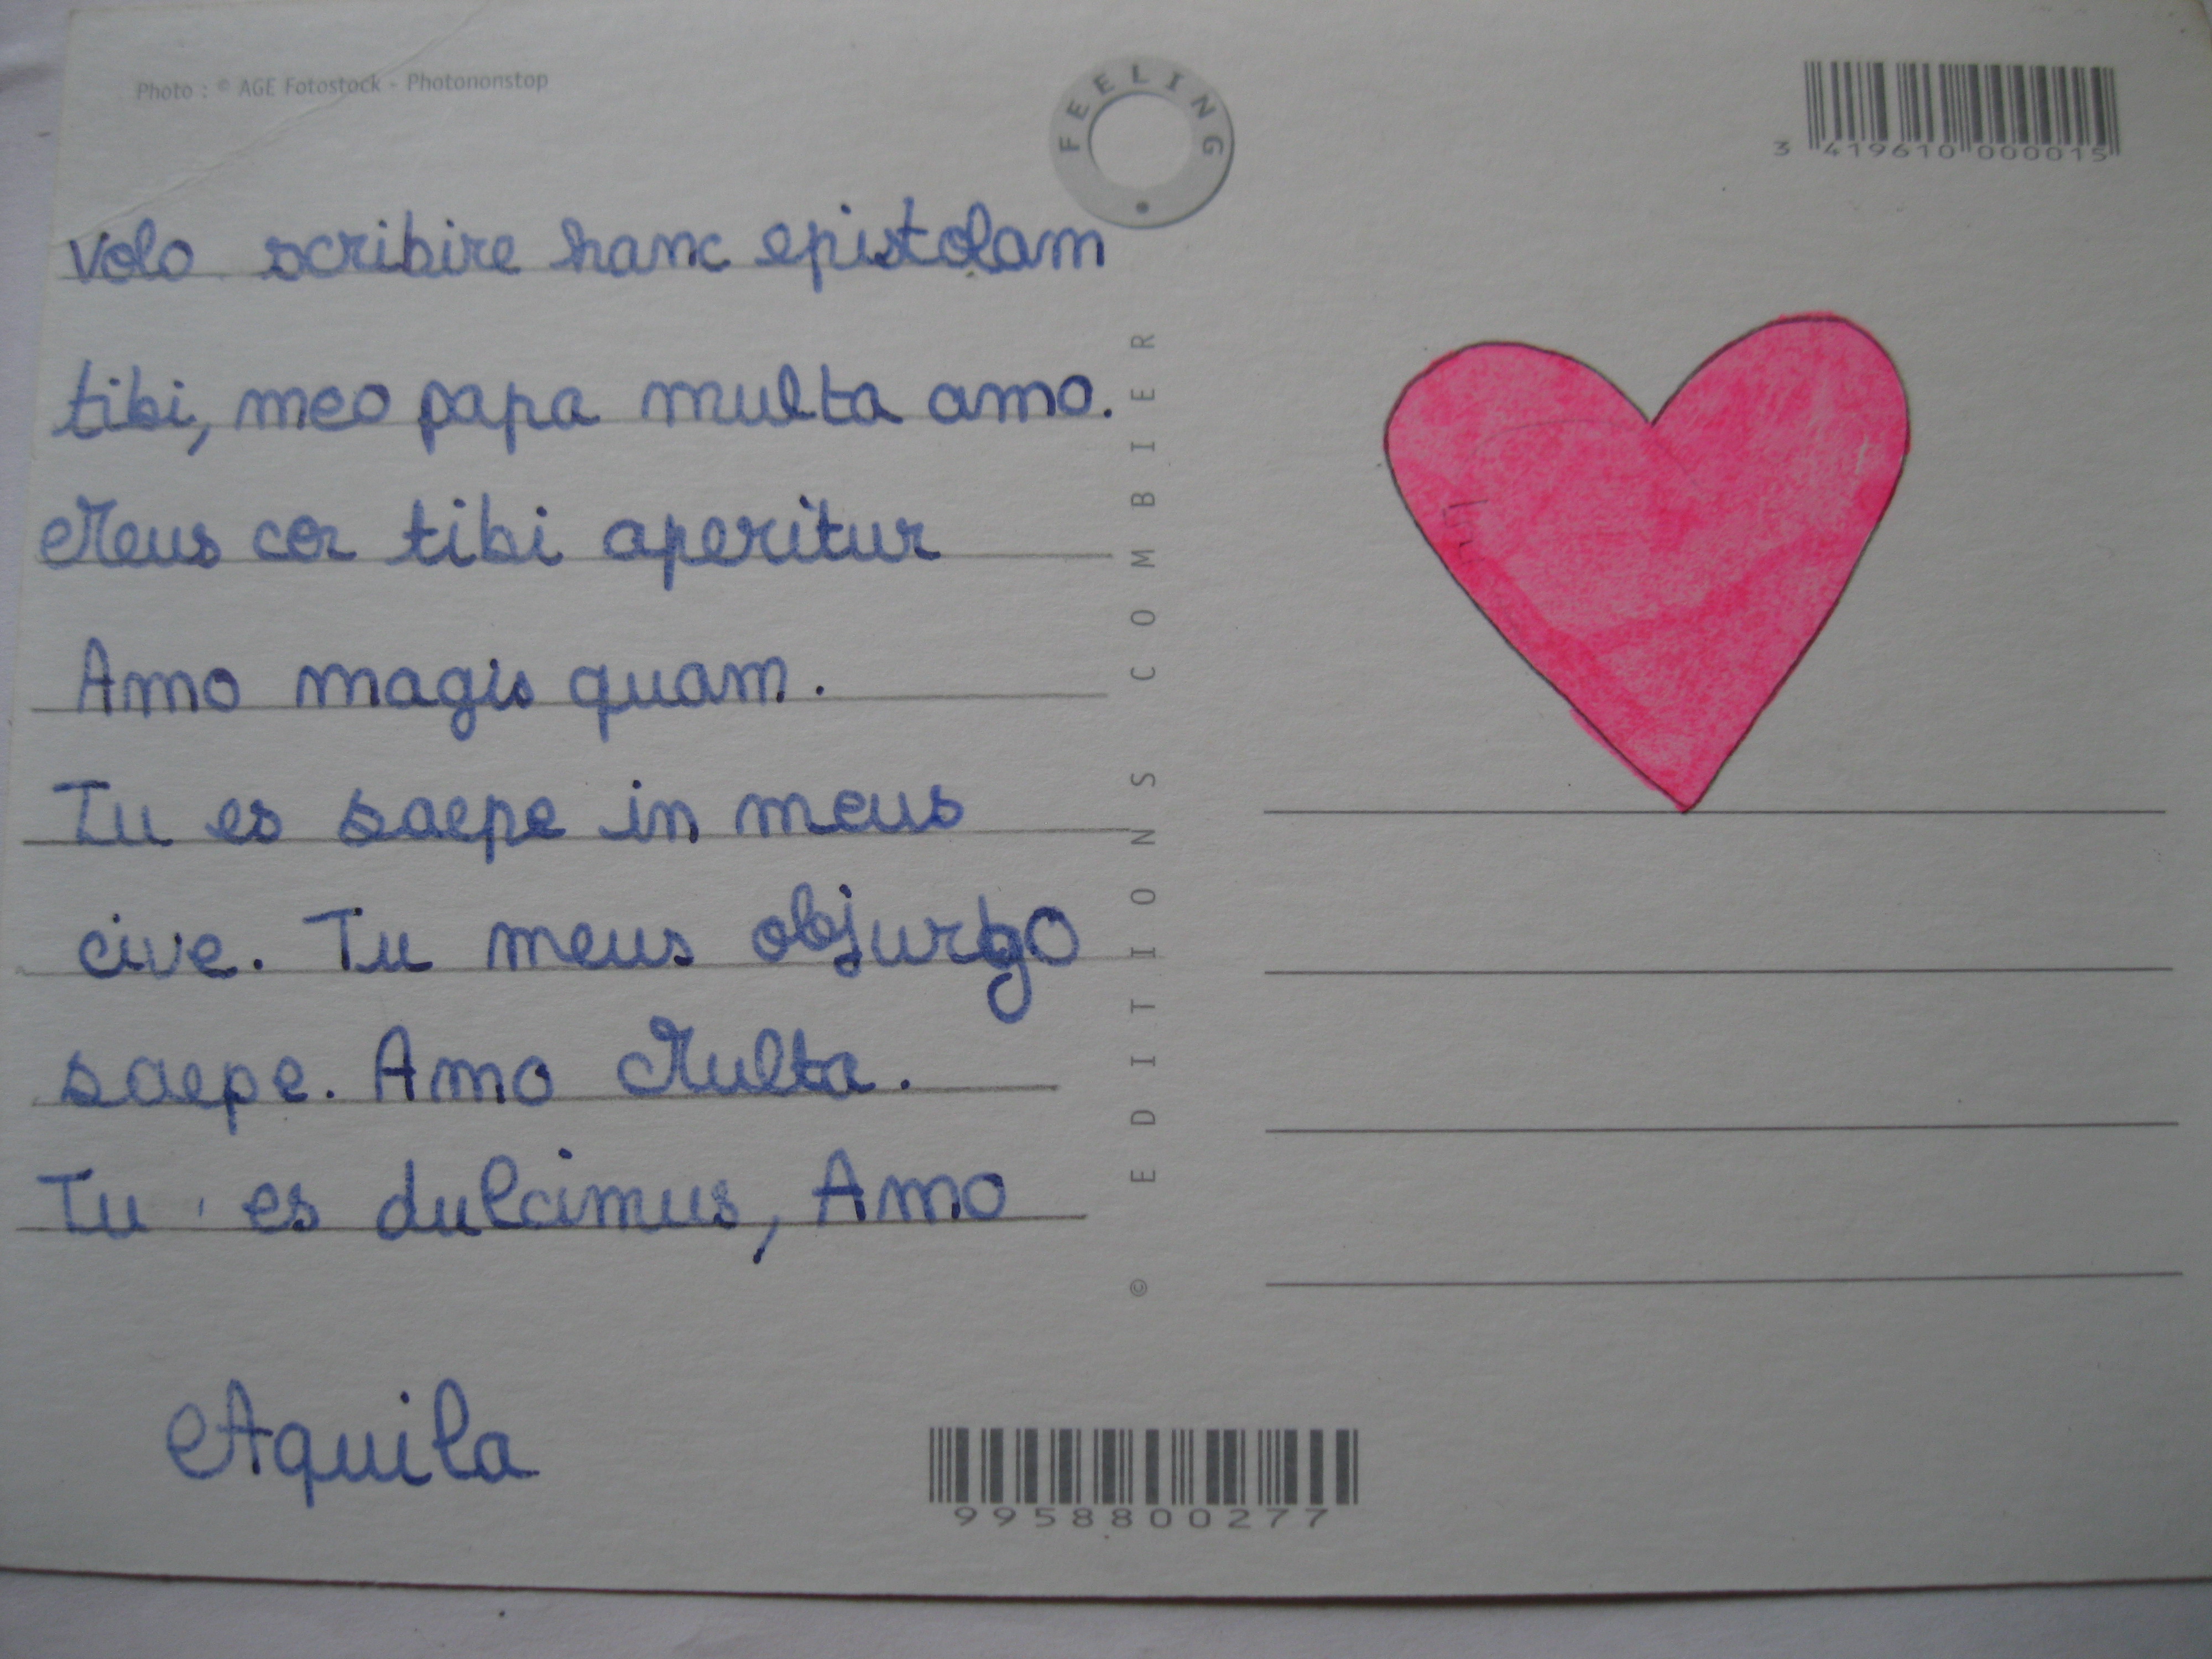 Photo : © AGE Fotostock - Photononstop
FEELING
3 419610 000015
Volo scribire hanc epistolam
tibi, meo papa multa amo.
Meus cor tibi aperitur
Amo magis quam.
Tu es saepe in meus
cive. Tu meus objurgo
saepe. Amo Multa.
Tu es dulcimus, Amo
Aquila
© EDITIONS COMBIER
9958800277